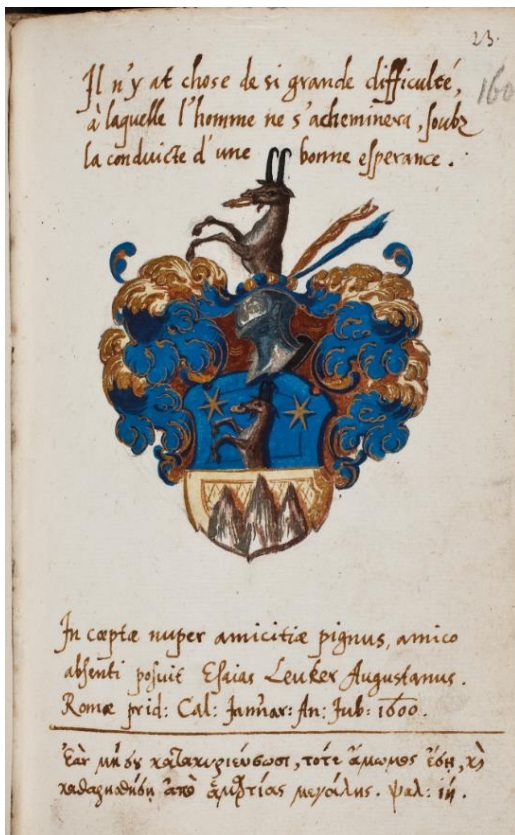 23.
160
Il n'y at chose de si grande difficulté,
à laquelle l'homme ne s'acheminera, soubz
la conduicte d'une bonne esperance.
In cœptæ nuper amicitiæ pignus, amico
absenti posuit Esaias Leuker Augustanus.
Romæ prid: Cal: Januar: An: Jub: 1600.
Ἐὰν μή μου κατακυριεύσωσι, τότε ἄμωμος ἔσῃ, κὶ
καθαρισθήσῃ ἀπὸ ἁμαρτίας μεγάλης. ψαλ: ιή.